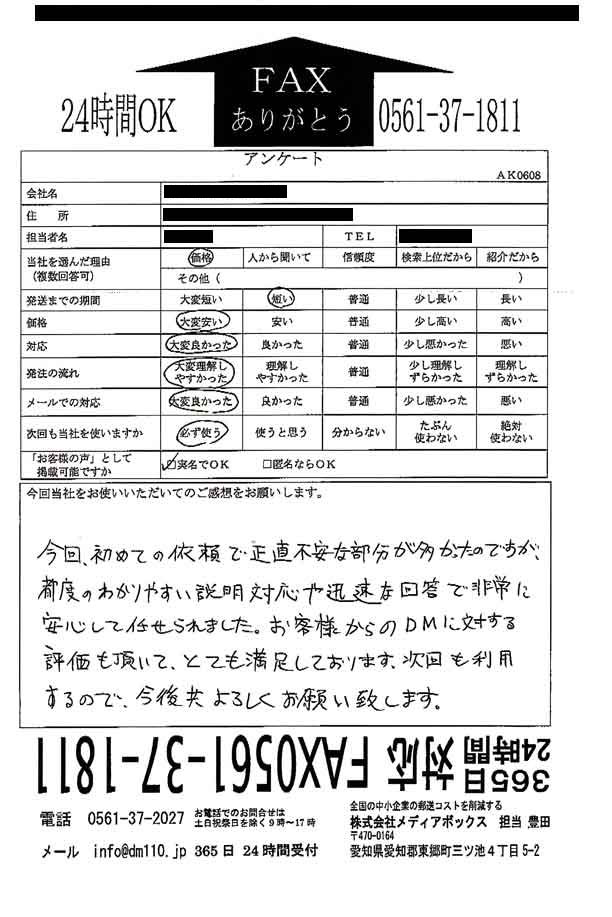 FAX
ありがとう
24時間OK
0561-37-1811
アンケート
AK0608
会社名
住 所
担当者名 TEL
当社を選んだ理由
(複数回答可)
価格 人から聞いて 信頼度 検索上位だから 紹介だから
その他 ( )
発送までの期間 大変短い 短い 普通 少し長い 長い
価格 大変安い 安い 普通 少し高い 高い
対応 大変良かった 良かった 普通 少し悪かった 悪い
発注の流れ 大変理解しやすかった 理解しやすかった 普通 少し理解しずらかった 理解しずらかった
メールでの対応 大変良かった 良かった 普通 少し悪かった 悪い
次回も当社を使いますか 必ず使う 使うと思う 分からない たぶん使わない 絶対使わない
「お客様の声」として
掲載可能ですか
☑実名でOK □匿名ならOK
今回当社をお使いいただいてのご感想をお願いします。
今回、初めての依頼で正直不安な部分が多かったのですが、
都度のわかりやすい説明対応や迅速な回答で非常に
安心して任せられました。お客様からのDMに対する
評価も頂いて、とても満足しております。次回も利用
するので、今後共よろしくお願い致します。
365日24時間対応 FAX0561-37-1811
電話 0561-37-2027 お電話でのお問合せは
土日祝祭日を除く9時~17時
メール info@dm110.jp 365日 24時間受付
全国の中小企業の郵送コストを削減する
株式会社メディアボックス 担当 豊田
〒470-0164
愛知県愛知郡東郷町三ツ池4丁目5-2